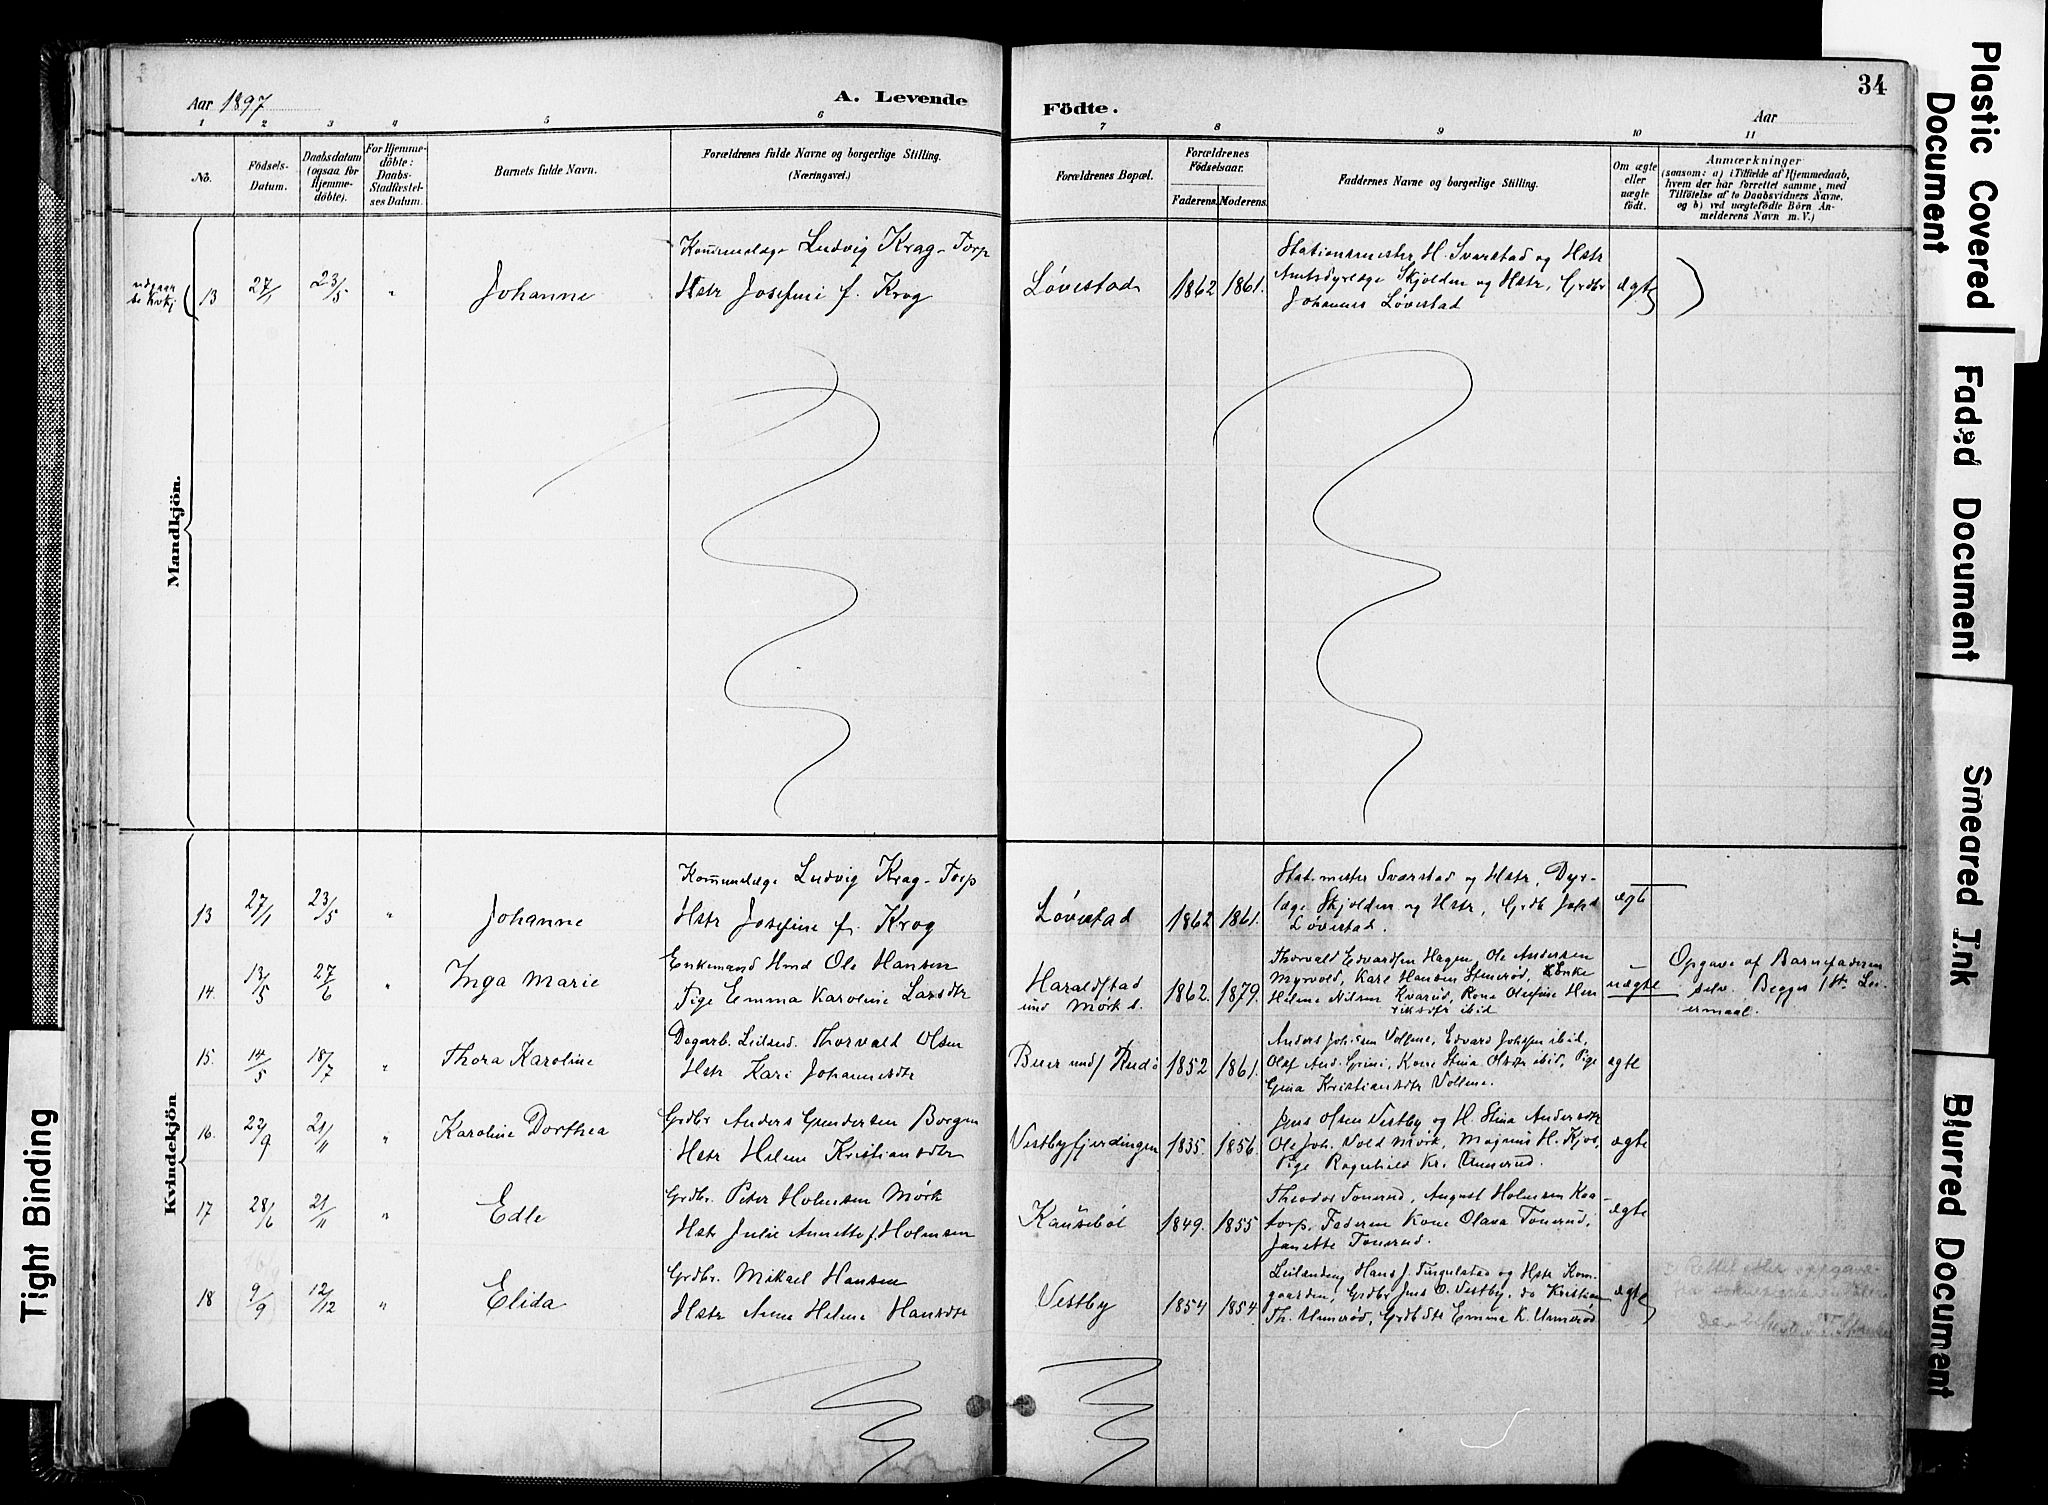 34
Aar 1897
A. Levende
Födte.
Aar
1 2 3 4 5 6 7 8 9 10 11
No.
Födsels-Datum.
Daabsdatum (ogsaa for Hjemmedöbte).
For Hjemmedöbte: Daabs-Stadfæstelses Datum.
Barnets fulde Navn.
Forældrenes fulde Navne og borgerlige Stilling. (Næringsvei.)
Forældrenes Bopæl.
Forældrenes Födselsaar.
Faderens. Moderens.
Faddernes Navne og borgerlige Stilling.
Om ægte eller uægte födt.
Anmærkninger
(saasom: a) i Tilfælde af Hjemmedaab,
hvem der har forrettet samme, med
Tilföielse af to Daabsvidners Navne,
og b) ved uægtefödte Börn An-
melderens Navn m. V.)
Mandkjön.
udgaar
13 27/1 23/5 " Johanne
Kommunelæge Ludvig Krag-Torp
Hstr Josefine f. Krog
Løvestad 1862 1861.
Stationsmester H. Svarstad og Hstr
Amtsdyrlæge Skjolden og Hstr, Grdbr
Johannes Løvestad
ægte
Kvindekjön
13 27/1 23/5 " Johanne
Kommunelæge Ludvig Krag-Torp
Hstr Josefine f. Krog
Løvestad 1862 1861.
Stat.mester Svarstad og Hstr, Dyr-
læge Skjolden og Hstr, Grdb
Løvestad.
ægt
14. 13/5 27/6 " Inga Marie
Enkemand Hmd Ole Hansen
Pige Emma Karoline Larsdtr
Haraldstad
und Mørk 1862. 1879.
Thorvald Edvardsen Hagen, Ole Andersen
Myrvold, Karl Hansen Enke
Helene Nilsen Kvarud, Kone Olefine Hen
riksdtr ibid
uægte
Opgave af Barnefaderen
selv. Begges 1ste Lei-
ermaal.
15. 14/5 18/7 " Thora Karoline
Dagarb. Leilænd. Thorvald Olsen
Hstr Kari Johannesdtr
1852 1861.
Anders Johnsen Vollene, Edvard ibid,
Olaf And. Grini, Kone Stina Olsdtr ibid, Pige
Gina Kristiansdtr Vollene.
ægte
16. 22/9 21/11 " Karoline Dorthea
Grdbr Anders Gundersen Borgen
Hstr Helene Kristiansdtr
Vestbyfjerdingen 1835. 1856.
Jens Olsen Vestby og H. Stina Andersdtr
Ole Joh. Vold Mørk, Magnus H. Kjos,
Pige Ragnhild Kr. Unnerud.
ægte
17 28/6 21/11 " Edle
Grdbr. Peter Holmsen Mørk
Hstr Julie Annette f. Holmsen
1849. 1855
Theodor Tonerud, August Holmsen Kaa-
torp, Faderen Kone Olava Tonerud,
Janette Tonerud.
ægte
18 9/9 12/12 " Elida
Grdbr. Mikael Hansen
Hstr Anne Helene Hansdtr
Vestby 1854 1854.
Leilænding Hans J. Tingulstad og Hstr Kom-
gaarden, Grdbr Jens O. Vestby, do Kristian
Th. Unnerød, Grdbdtr Emma K. Unnerød
ægte
Rettet efter opgave
Plastic Covered Document
Faded Document
Smeared Ink
Blurred Document
Tight Binding